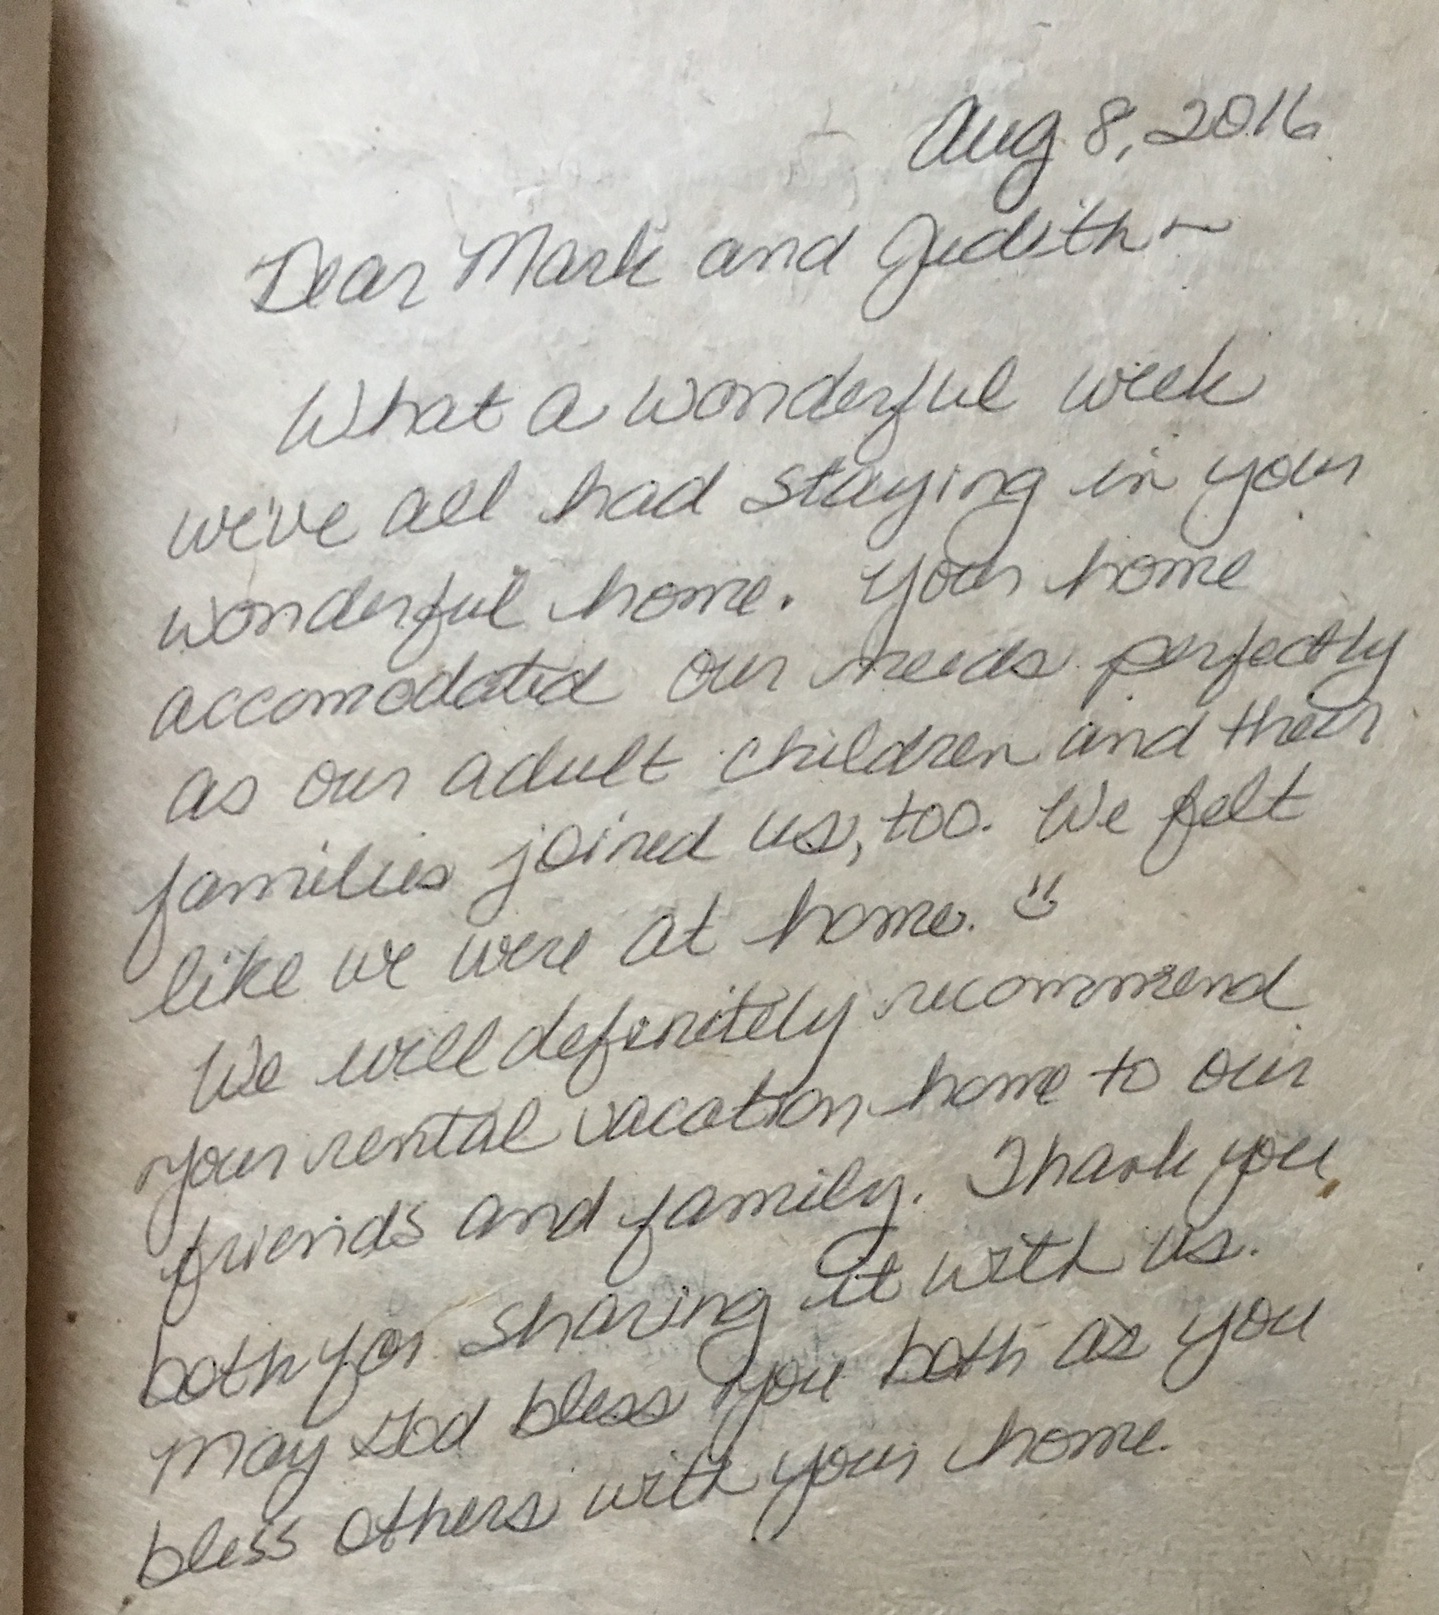 Aug 8, 2016
Dear Mark and Judith ~
What a wonderful week
we've all had staying in your
wonderful home. Your home
accomodated our needs perfectly
as our adult children and their
families joined us, too. We felt
like we were at home. :)
We will definitely recommend
your rental vacation home to our
friends and family. Thank you
both for sharing it with us.
May God bless you both as you
bless others with your home.